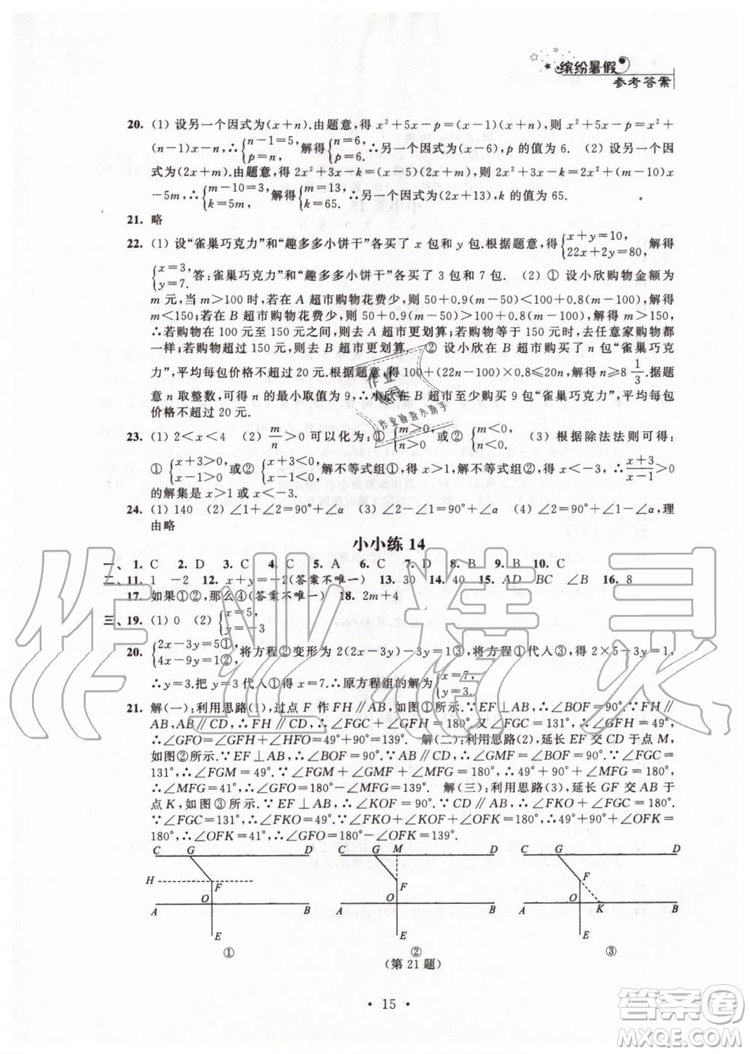 缤纷暑假
参考答案
20. (1) 设另一个因式为(x+n).由题意,得 x²+5x-p=(x-1)(x+n),则 x²+5x-p=x²+
(n-1)x-n,∴{n-1=5, p=n, 解得{n=6, p=6, ∴另一个因式为(x-6),p 的值为 6. (2) 设另一个因
式为(2x+m).由题意,得 2x²+3x-k=(x-5)(2x+m),则 2x²+3x-k=2x²+(m-10)x
-5m,∴{m-10=3, k=5m, 解得{m=13, k=65. ∴另一个因式为(2x+13),k 的值为 65.
21. 略
22. (1) 设“雀巢巧克力”和“趣多多小饼干”各买了 x 包和 y 包.由题意,得{x+y=10, 22x+2y=80, 解得
{x=3, y=7. 答:“雀巢巧克力”和“趣多多小饼干”各买了 3 包和 7 包. (2) ① 设小欣购物金额为
m 元,当 m>100 时,若在 A 超市购物花费少,则 50+0.9(m-50)<100+0.8(m-100),解得
m<150.若在 B 超市购物花费少,则 50+0.9(m-50)>100+0.8(m-100),解得 m>150.
∴若购物在 100 元至 150 元之间,则在 A 超市更划算;若购物等于 150 元时,都可以;若购
物超过 150 元,则在 B 超市更划算. ② 设小欣在 B 超市购买了 n 包“雀巢巧克
力”,平均每包价格不超过 20 元.根据题意,得 100+(22n-100)×0.8≤20n,解得 n≥8 1/3.据题意
n 取整数,可得 n 的最小取值为 9.∴小欣在 B 超市至少购买 9 包“雀巢巧克力”,平均每包
价格不超过 20 元.
23. (1) 2<x<4 (2) m/n>0 可以化为:① {m>0, n>0 或② {m<0, n<0. (3) 根据除法法则可得:①
{x+3>0, x-1>0 或② {x+3<0, x-1<0, 解不等式组①,得 x>1,解不等式组②,得 x<-3,∴不等式 x+3/x-1>0
的解集是 x>1 或 x<-3.
24. (1) 140 (2) ∠1+∠2=90°+∠α (3) ∠2-∠1=90°+∠α (4) ∠1-∠2=90°+∠α,理
由略
小小练 14
一、1. C 2. D 3. C 4. C 5. A 6. C 7. D 8. C 9. B 10. C
二、11. 1 -2 12. x+y=-1(答案不唯一) 13. 30 14. 40 15. AD BC ∠B 16. 8
17. 如果①②,那么④(答案不唯一) 18. 2m+4
三、19. (1) 0 (2) {x=3, y=1
20. {2x-3y=5①, 4x-9y=1②, 将方程②变形为 2(2x-3y)-3y=1③,将方程①代人③,得 2×5-3y=1,
∴y=3.把 y=3 代人①,得 x=7,∴原方程组的解为{x=7, y=3.
21. 解(一):利用思路(1),过点 F 作 FH∥CD,如图①所示.∵EF⊥AB,∴∠BOF=90°.∵FH∥
AB,AB∥CD,∴FH∥CD,∴∠FGC+∠GFH=180°,∵∠FGC=131°,∴∠GFH=49°,
∴∠GFO=∠GFH+∠HFO=49°+90°=139°. 解(二):利用思路(2),延长 EF 交 CD 于点 M,
如图②所示.∵EF⊥AB,∴∠BOF=90°.∵CD∥AB,∴∠CMF=90°.∵∠FGC=131°,
∴∠FGM=49°.∵∠FGM+∠GMF+∠MFG=180°,∴∠MFG=180°-∠FGM-∠GMF=41°.
∴∠MFG=41°,∴∠GFO=180°-∠MFG=139°. 解(三):利用思路(3),延长 GF 交 AB 于
点 K,如图③所示.∵EF⊥AB,∴∠FOK=90°.∵CD∥AB,∴∠GKO+∠FGC=180°,∵∠FGC
=131°,∴∠FKO=49°.∵∠FKO+∠FOK+∠OFK=180°,∴∠OFK=180°-∠FOK-
∠FKO=41°.∴∠OFK=41°,∴∠GFO=180°-∠OFK=139°.
C G D C G M D C G D
H F F F
A O B A O B A O K B
E E E
① ② ③
(第 21 题)
· 15 ·
作业精灵
答案圈
MXQE.COM